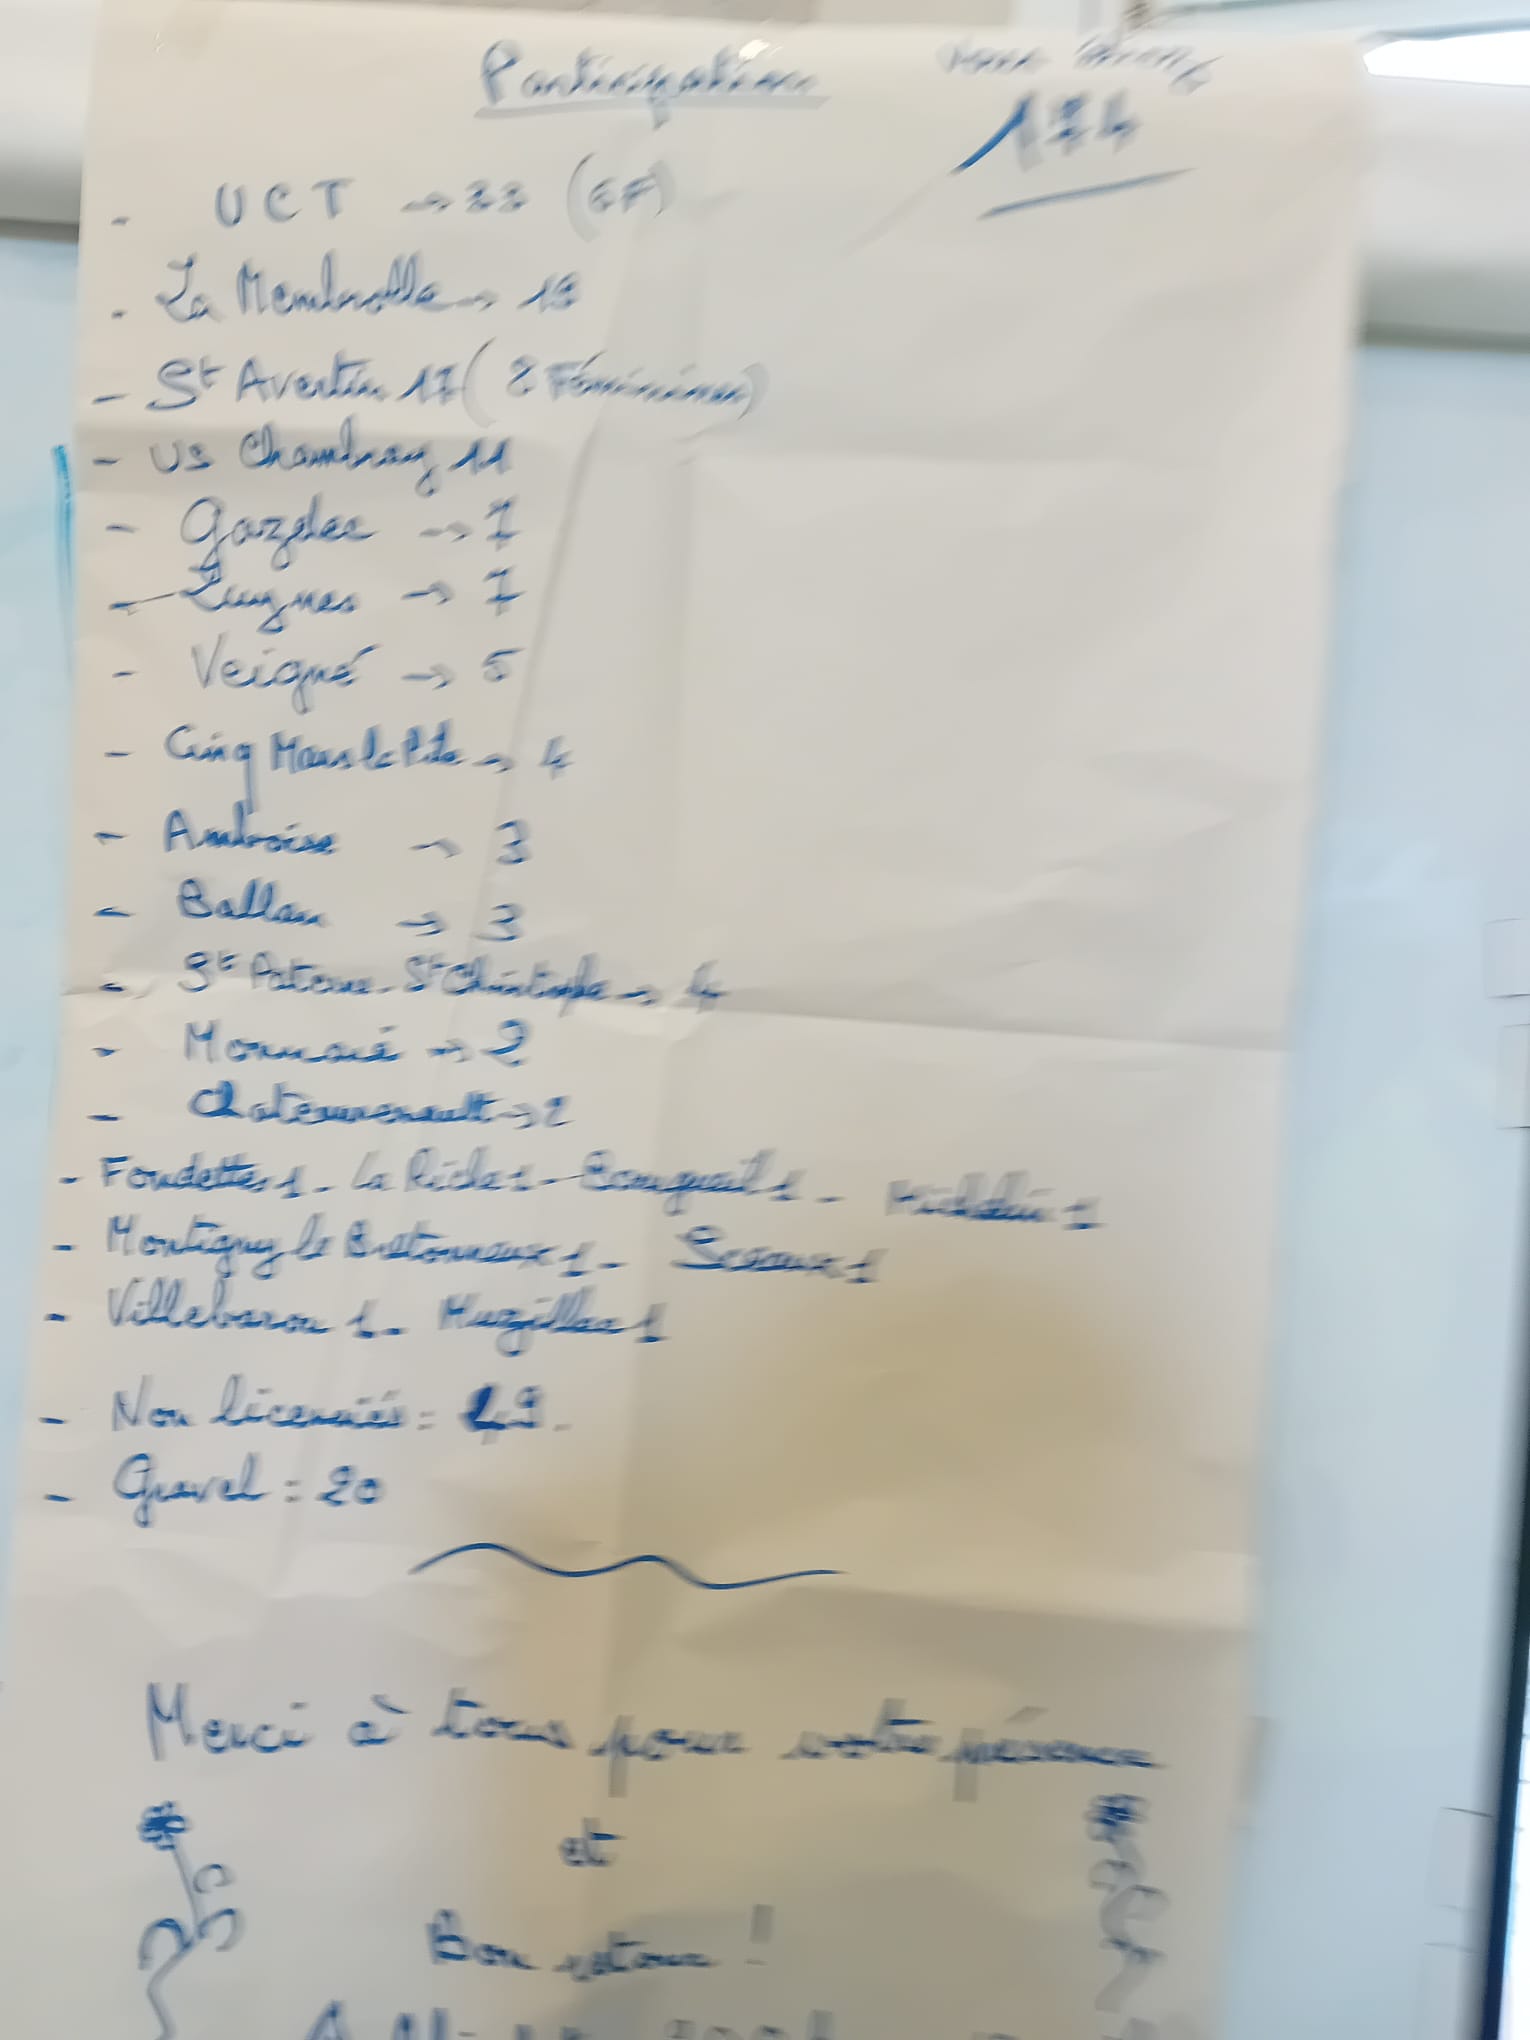 Participation vous étiez
174
- UCT → 22 (6F)
- La Membrolle → 18
- St Avertin 17 (2 Féminines)
- US Chambray 11
- Gazelec → 7
- Luynes → 7
- Veigné → 5
- Cinq Mars la Pile → 4
- Amboise → 3
- Ballan → 3
- St Paterne - St Christophe → 4
- Monnaie → 2
- Chateaurenault → 2
- Fondettes 1 - La Riche 1 - Bourgueil 1 - 1
- Montigny le Bretonneux 1 - Sceaux 1
- Villebarou 1 - Muzillac 1
- Non licenciés : 49.
- Gravel : 20
Merci à tous pour votre présence
et
Bon retour !